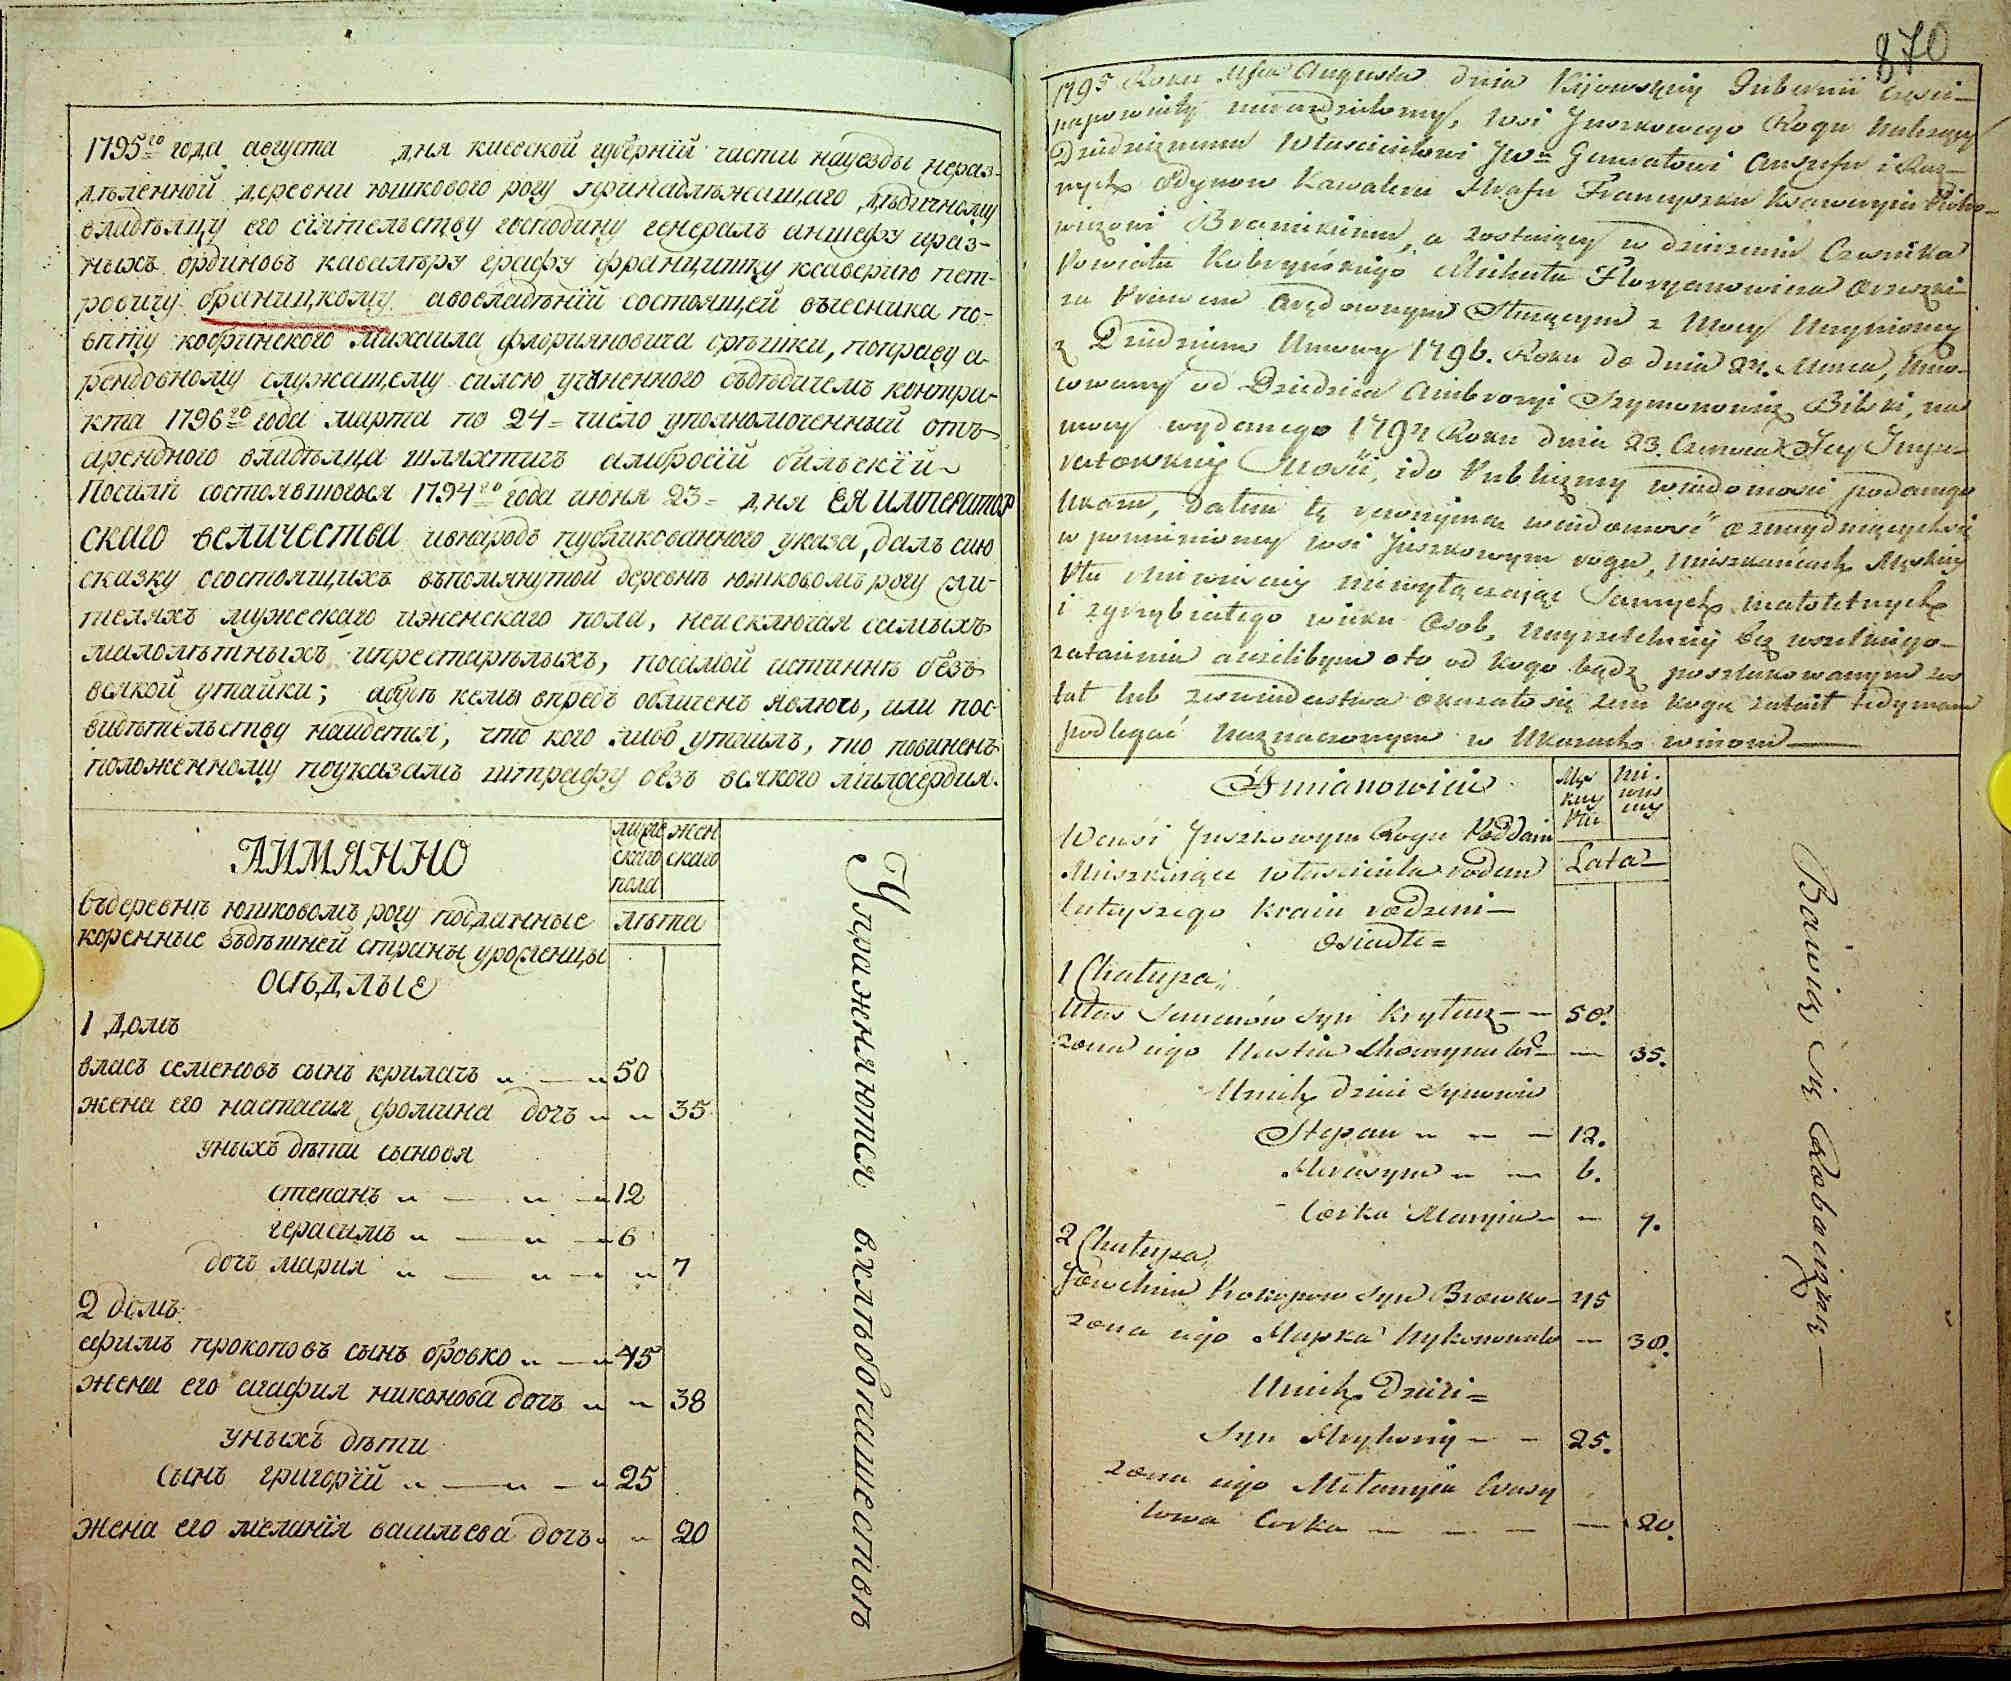 1795го года августа дня киевской губернїи части науезды нераз-
дѣленной деревни юшкового рогу принадлѣжащаго дѣдичному
владѣлцу его сіятельству господину генералъ аншефу ираз-
ныхъ ординовъ кавалѣру графу францишку ксаверию пет-
ровичу браницкому авовладѣнїи состоящей въчесника по-
вѣту кобринского михаила флорияновича орѣшки, поправу а-
рендовному служащему силою учиненного съдѣдичемъ контра-
кта 1796го года марта по 24= число уполномоченный отъ
арендного владѣлца шляхтичъ амбросїй билъскїй
Посилѣ состоявшогося 1794го года июня 23= дня ЕЯ император
скаго величества ивнародъ публикованного указа, далъ сию
сказку осостоящихъ въпомянутой деревнѣ юшковомъ рогу жи-
теляхъ мужескаго иженскаго пола, неисключая самыхъ
малолѣтныхъ ипрестарѣлыхъ, посамой истиннѣ безъ
всякой утайки; абудѣ кемъ впредь обличенъ явлюсь, или пос-
видѣтельству найдется, что кого либо утаилъ, то повиненъ
положенному поуказамъ штрафу безъ всякого милосердия.
АИМЯННО
муже
скаго
пола
жен
скаго
въдеревнѣ юшковомъ рогу подданные
лѣта
коренные зъдѣшней страны уроженцы
осѣдлые
1 домъ
власъ семеновъ сынъ крилачъ 50
жена его настасия фомина дочъ 35
уныхъ дѣти сыновя
степанъ 12
герасимъ 6
дочъ мария 7
2 домъ
ефимъ прокоповъ сынъ бровко 45
жена его агафия никонова дочъ 38
уныхъ дѣти
сынъ григорїй 25
жена его меланїя васильева дочъ 20
Упражняются вхлѣбопашествѣ
870
1795 Roku Msca Augusta dnia Kijowskiey Gubernii części
napowiaty nierozdzieloney, wsi Juszkowego Rogu należący
Dziedzicznemu Włascicielowi JWu Generałowi Anszefu i Roz-
nych Ordynow Kawaleru Hrafu Franciszku Ksaweryiu Petro-
wiczowi Branickiemu, a zostaiący w dzierzeniu Czesnika
Powiatu Kobryńskiego Michała Floryanowicza Oreszki
za Prawem Arędownym Służącym z Mocy Uczynioney
z Dziedzicem Umowy 1796. Roku do dnia 24. Marca, Umo-
cowany od Dziedzica Ambrozyi Szymonowicz Bilski, na
mocy wydanego 1794 Roku dnia 23. Czerwca Jey Impe-
ratorskiey Mości, ido Publiczney wiadomości podanego
Ukazu, Dałem tę rewizyiną wiadomość o znaydujących się
w pomienioney wsi Juszkowym rogu, mieszkańcach Męskiey
Płci i Niewiesciey niewyłączaiąc Samych małoletnych
i zgrzybiałego wieku Osob, nayrzetelniey bez wszelkiego
zataienia a iezelibym oto od kogo bądź poszlakowanym zo
tał lub zeswiadectwa okazało się zem kogo zataił tedy mam
podlegać Naznaczonym w Ukazach winom
A mianowicie
Męs
kiey
Płci
Nie-
wies
ciey
Wewsi Juszkowym Rogu Poddani
Lata
Mieszkaiące własciciela rodem
tutayszego kraiu rodzeni
Osiadłe=
1 Chałupa
Ułas Semenów syn Kryłacz 50.
zona iego Nastia Chomyna 35.
Unich dzieci Synowie
Stepan 12.
Harasym 6.
Corka Maryia 7.
2 Chałupa
Jowchim Prokopow syn Browko 45
zona iego Hapka Nykonowa 38.
Unich Dzieci=
Syn Hryhoriy 25.
zona iego Mełanyia Wasy
lowa Corka 20.
Bawią Się Robocizną